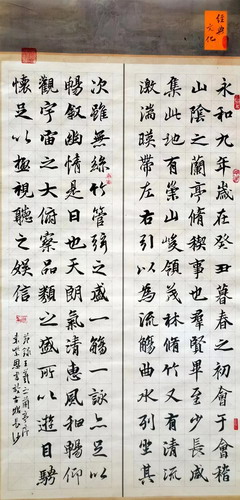 永和九年歲在癸丑暮春之初會于會稽
山陰之蘭亭脩稧事也羣賢畢至少長咸
集此地有崇山峻領茂林脩竹又有清流
激湍暎帶左右引以為流觴曲水列坐其
次雖無絲竹管弦之盛一觴一詠亦足以
暢叙幽情是日也天朗氣清惠風和暢仰
觀宇宙之大俯察品類之盛所以遊目騁
懷足以極視聽之娛信
節錄王羲之蘭亭序
文化